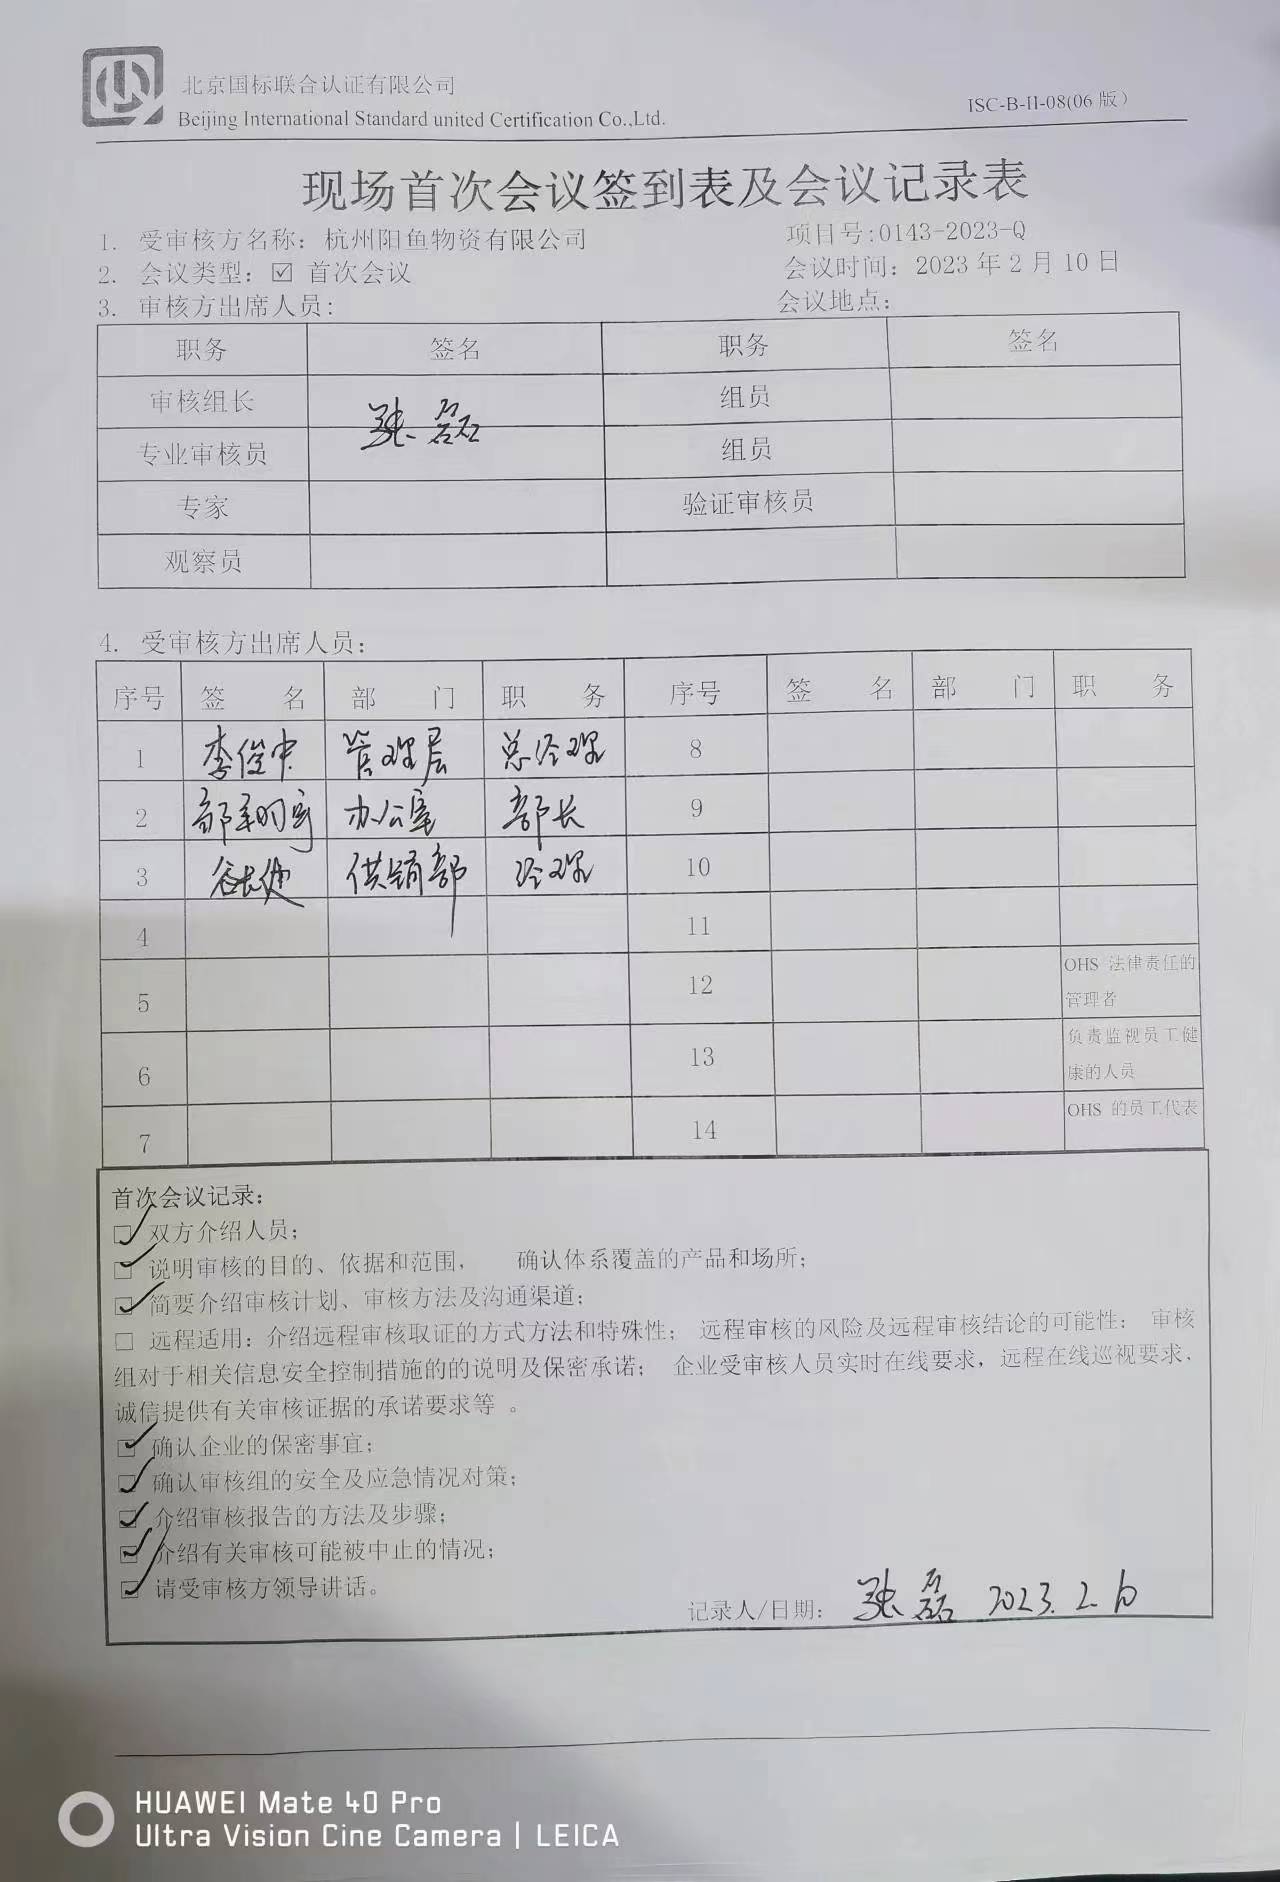 北京国标联合认证有限公司
Beijing International Standard united Certification Co.,Ltd.
ISC-B-II-08(06版)
现场首次会议签到表及会议记录表
1. 受审核方名称：杭州阳鱼物资有限公司 项目号:0143-2023-Q
2. 会议类型：☑ 首次会议 会议时间：2023年2月10日
3. 审核方出席人员： 会议地点：
职务 签名 职务 签名
审核组长 张磊 组员
专业审核员 组员
专家 验证审核员
观察员
4. 受审核方出席人员：
序号 签 名 部 门 职 务 序号 签 名 部 门 职 务
1 李俊中 管理层 总经理 8
2 办公室 部长 9
3 供销部 经理 10
4 11
5 12 OHS 法律责任的
管理者
6 13 负责监视员工健
康的人员
7 14 OHS 的员工代表
首次会议记录：
☑ 双方介绍人员；
☑ 说明审核的目的、依据和范围， 确认体系覆盖的产品和场所；
☑ 简要介绍审核计划、审核方法及沟通渠道；
□ 远程适用：介绍远程审核取证的方式方法和特殊性； 远程审核的风险及远程审核结论的可能性； 审核
组对于相关信息安全控制措施的的说明及保密承诺； 企业受审核人员实时在线要求，远程在线巡视要求，
诚信提供有关审核证据的承诺要求等 。
☑ 确认企业的保密事宜；
☑ 确认审核组的安全及应急情况对策；
☑ 介绍审核报告的方法及步骤；
☑ 介绍有关审核可能被中止的情况；
☑ 请受审核方领导讲话。
记录人/日期： 张磊 2023.2.10
HUAWEI Mate 40 Pro
Ultra Vision Cine Camera | LEICA